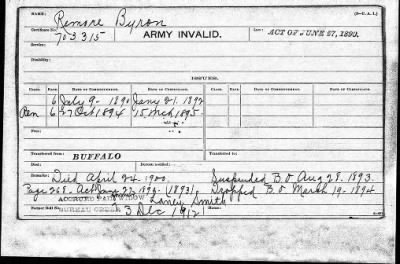 NAME: Remore Byron (3—C. A. I.)
Certificate No. 703315 ARMY INVALID. Law: ACT OF JUNE 27, 1890.
Service:
Disability:
ISSUES.
CLASS. RATE. DATE OF COMMENCEMENT. DATE OF CERTIFICATE. CLASS. RATE. DATE OF COMMENCEMENT. DATE OF CERTIFICATE.
6 July 9- 1890 Jany 21. 1892
Ren 6 27 Oct 1894 15 Mch 1895.
From:
Transferred from Transferred to
BUFFALO
Died
Remarks: Died April 24-1900. Suspended B.O Aug 28. 1893.
Page 268. Act 1893) Dropped B.O March 19-1894
ACCRUED PAID WIDOW Laney Smith
BUREAU ORDER 3 Dec 1912
Former Roll No.